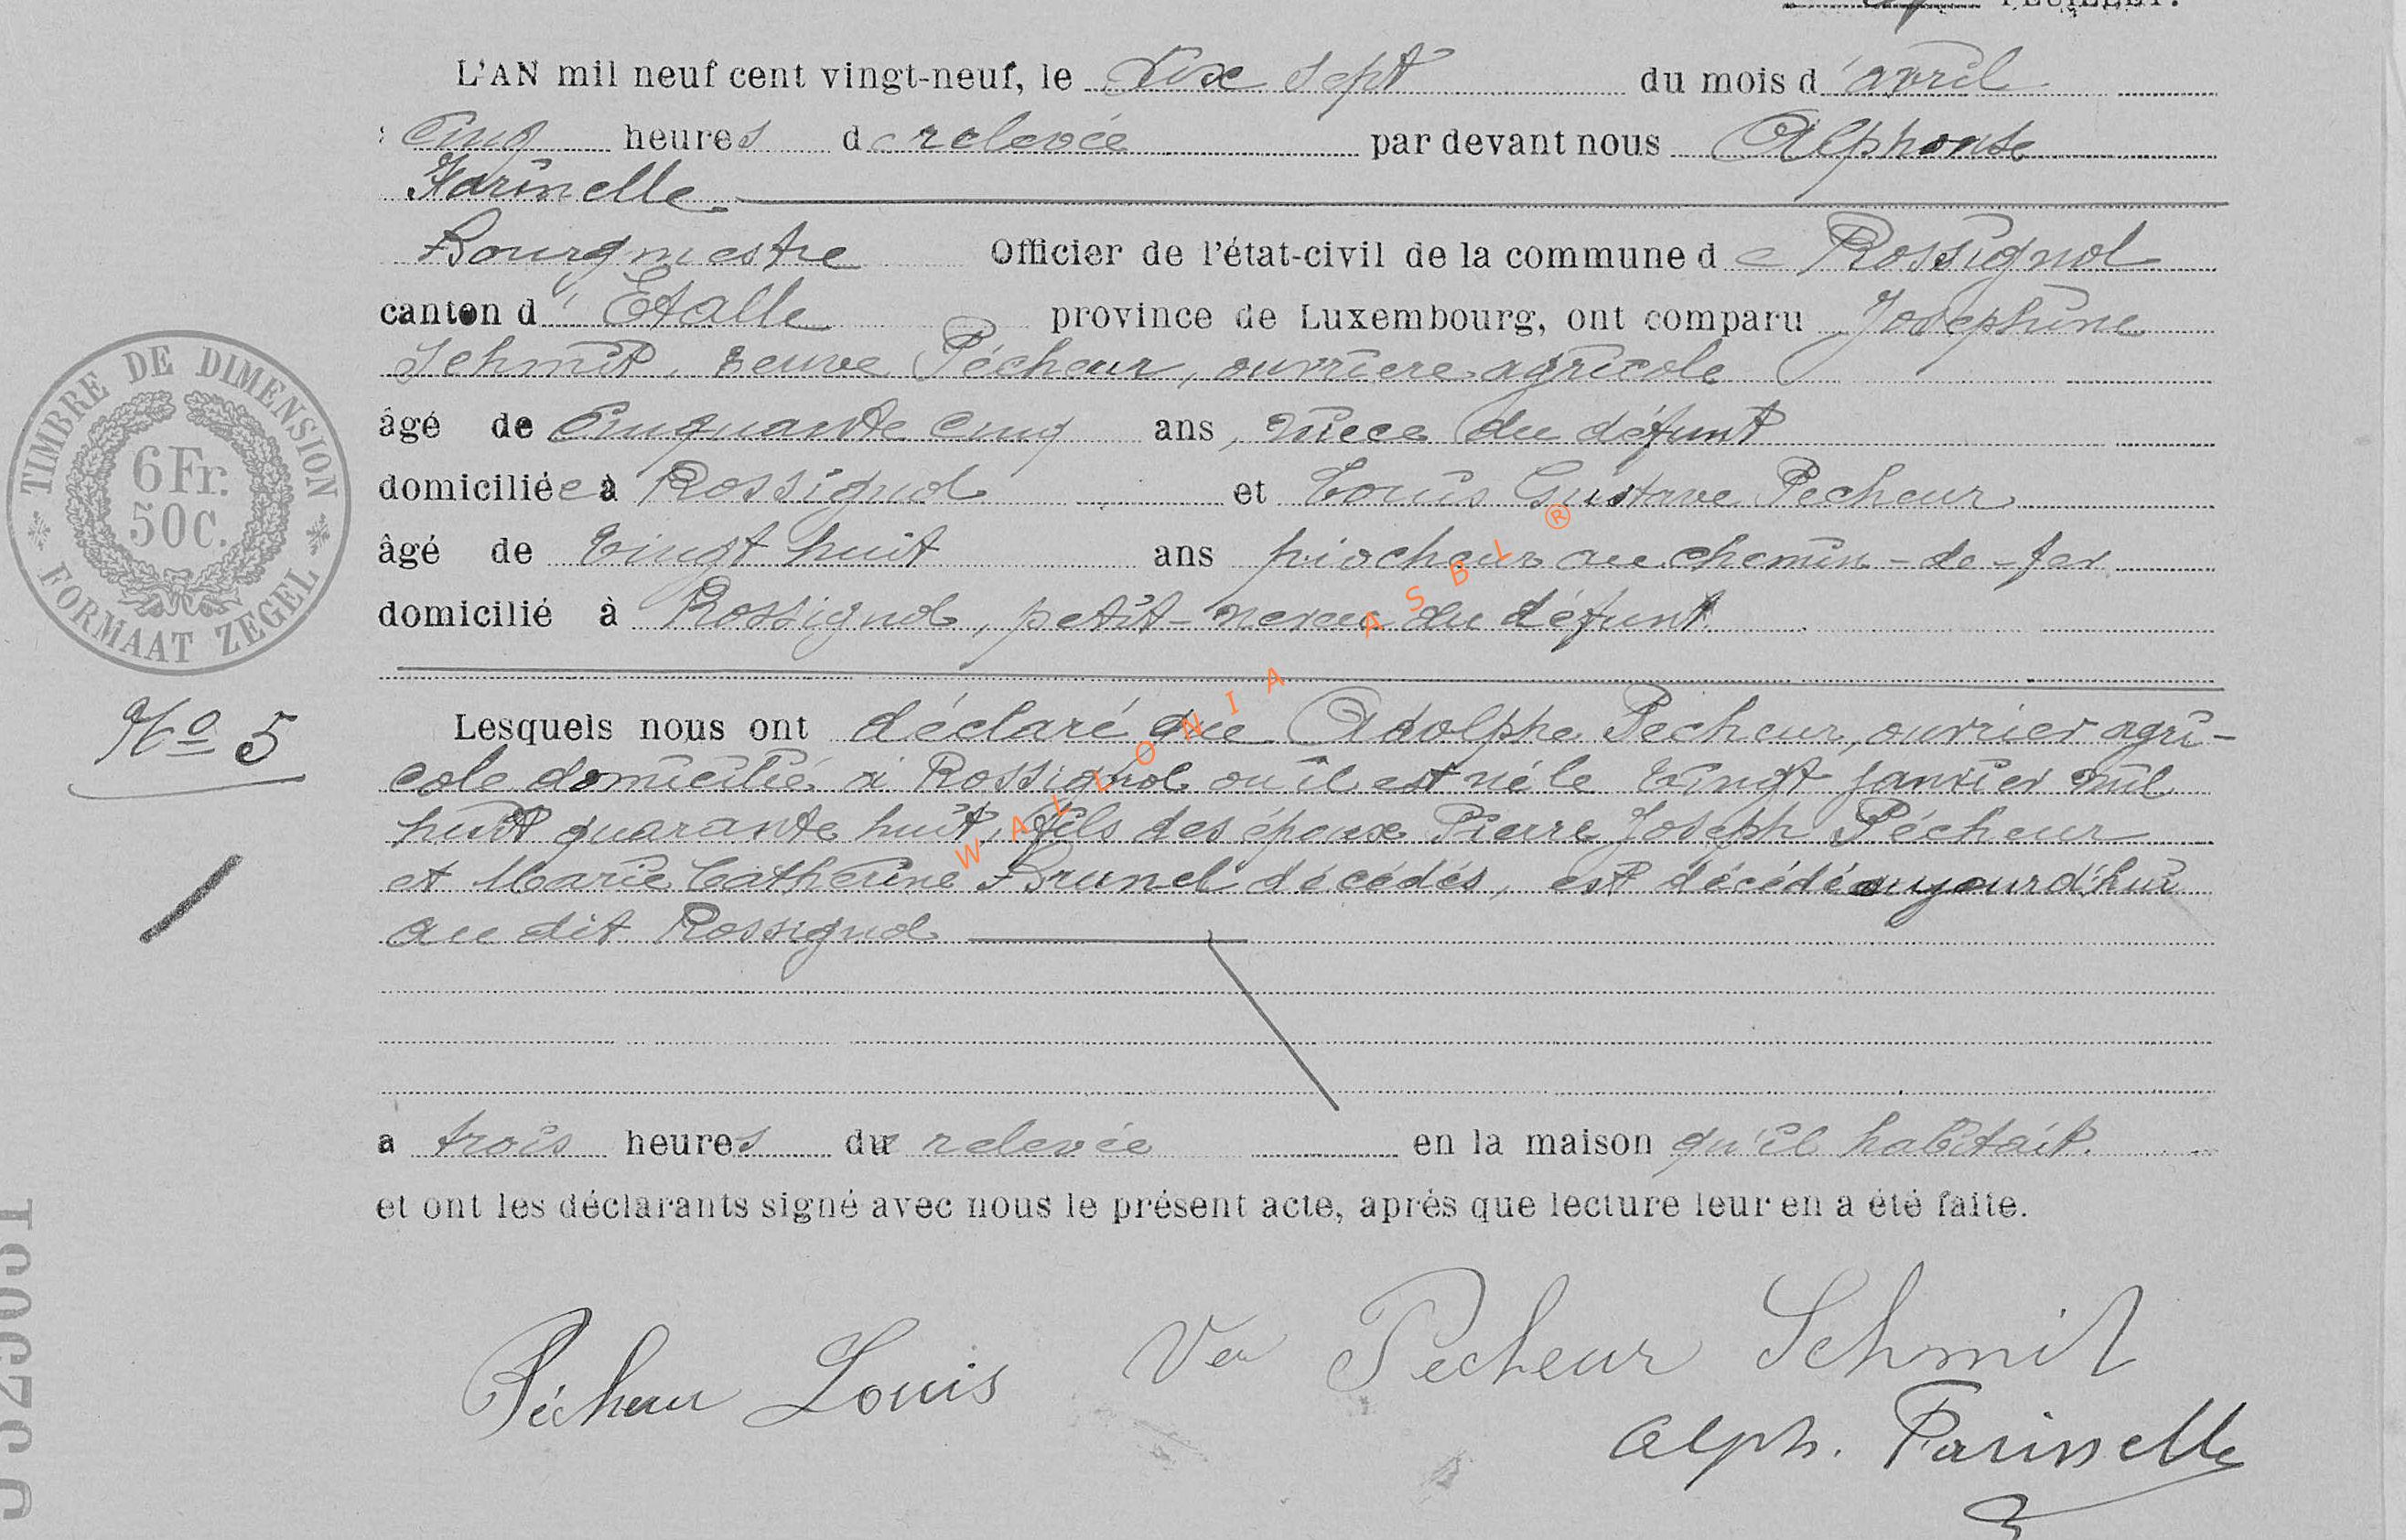 FEUILLET.
L'AN mil neuf cent vingt-neuf, le dix sept du mois d'avril
cinq heures de relevée par devant nous Alphonse
Farinelle
Bourgmestre Officier de l'état-civil de la commune de Rossignol
canton d'Etalle province de Luxembourg, ont comparu Joséphine
Schmit, veuve Pécheur, ouvrière agricole
âgé de cinquante cinq ans, nièce du défunt
domiciliée à Rossignol et Louis Gustave Pecheur
âgé de vingt huit ans piocheur au chemin-de-fer
domicilié à Rossignol, petit-neveu du défunt
Lesquels nous ont déclaré que Adolphe Pecheur, ouvrier agri-
cole domicilié à Rossignol où il est né le vingt janvier mil
huit quarante huit, fils des époux Pierre Joseph Pécheur
et Marie Catherine Brunel décédés, est décédé aujourd'hui
au dit Rossignol
a trois heures de relevée en la maison qu'il habitait.
et ont les déclarants signé avec nous le présent acte, après que lecture leur en a été faite.
Pécheur Louis Ve Pecheur Schmit
Alph. Farinelle
TIMBRE DE DIMENSION
6 Fr.
50 C.
FORMAAT ZEGEL
No 5
WALLONIA ASBL ®